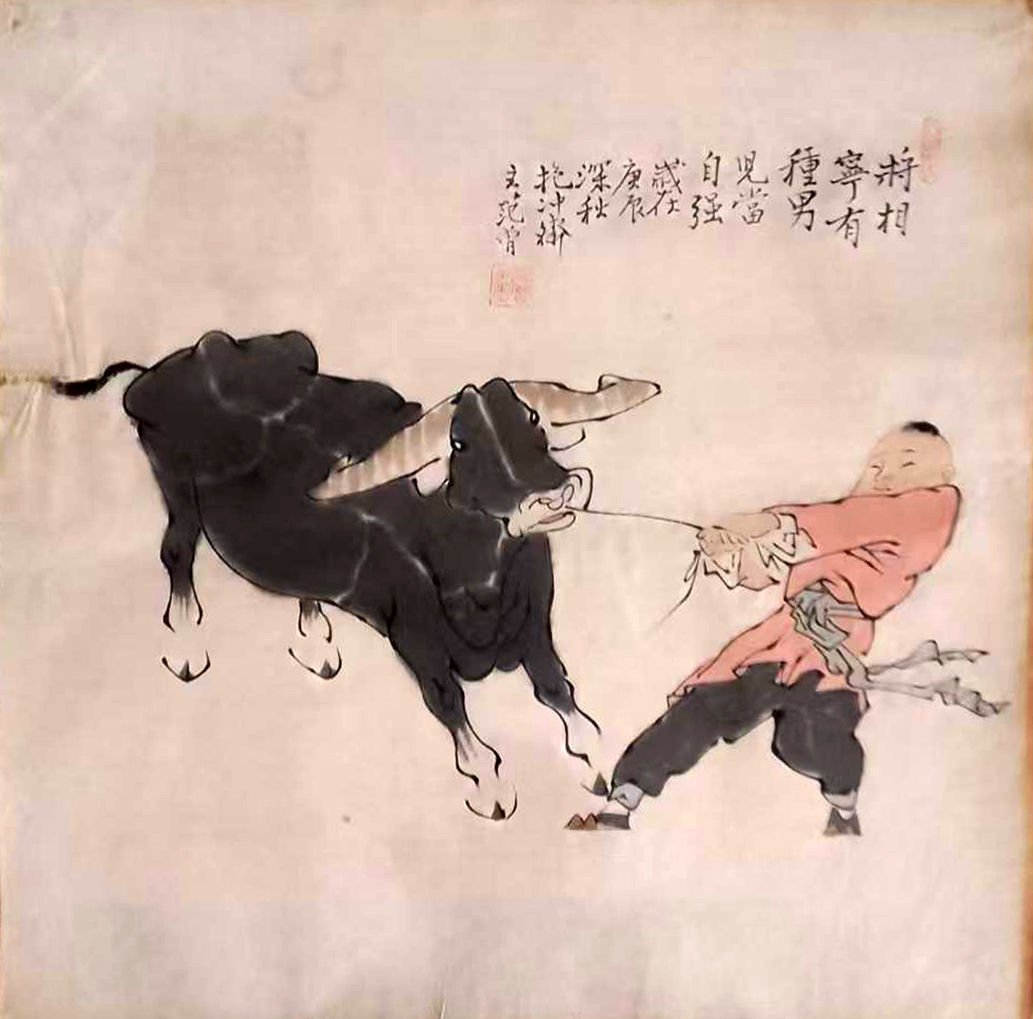 將相
寧有
種男
兒當
自强
歲在
庚辰
深秋
抱冲齋
主范曾